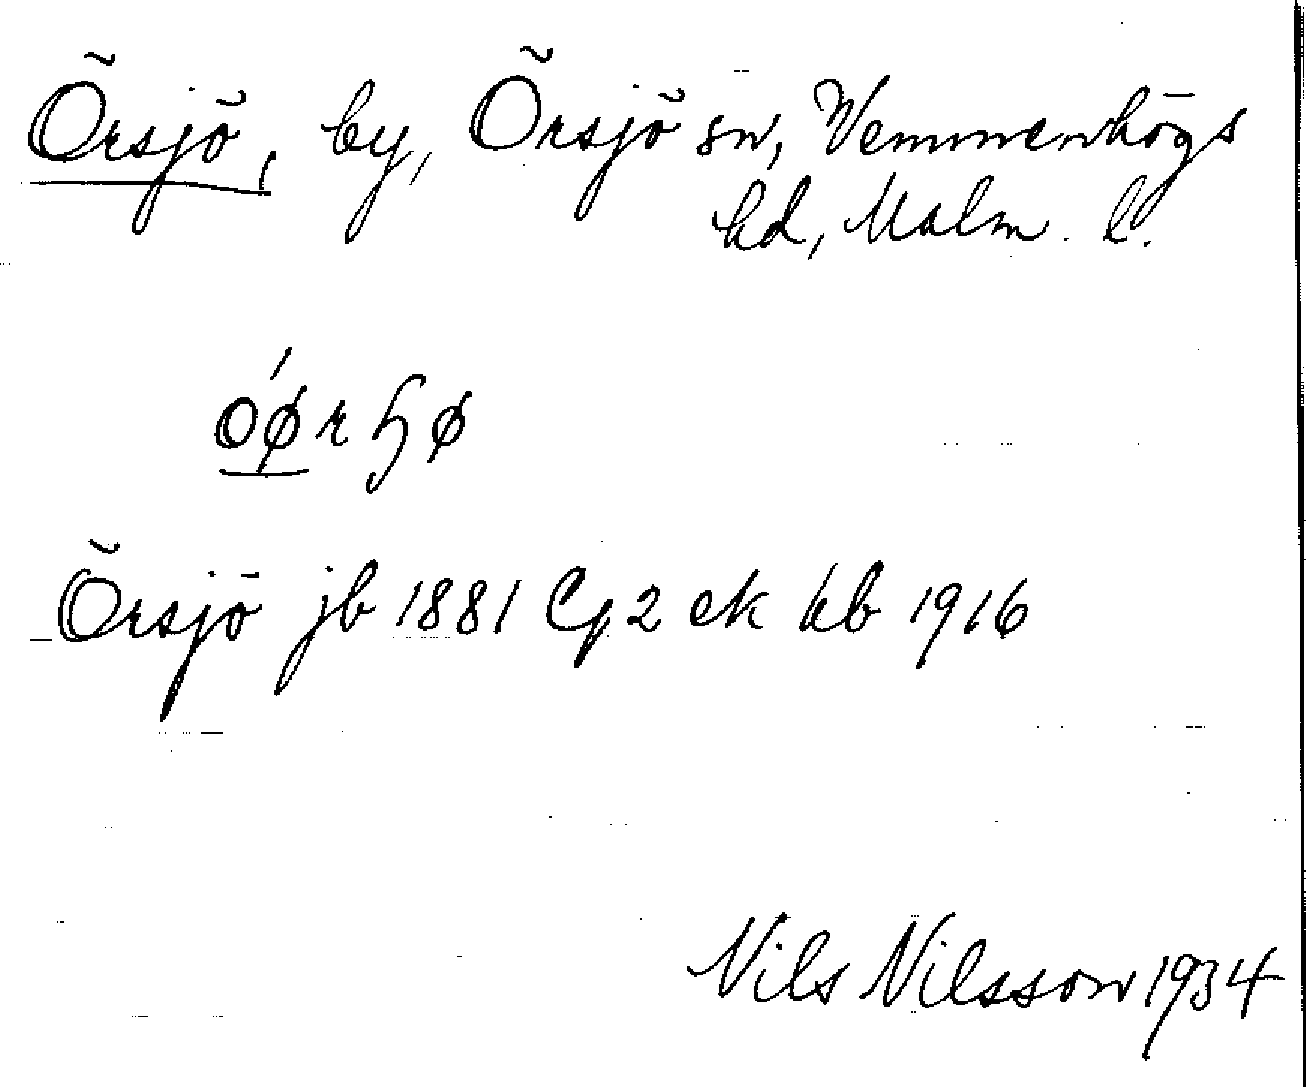 Örsjö, by, Örsjö sn, Vemmenhögs
hd, Malm. l.
óørɧø
Örsjö jb 1881 Cg 2 ek kb 1916
Nils Nilsson 1934